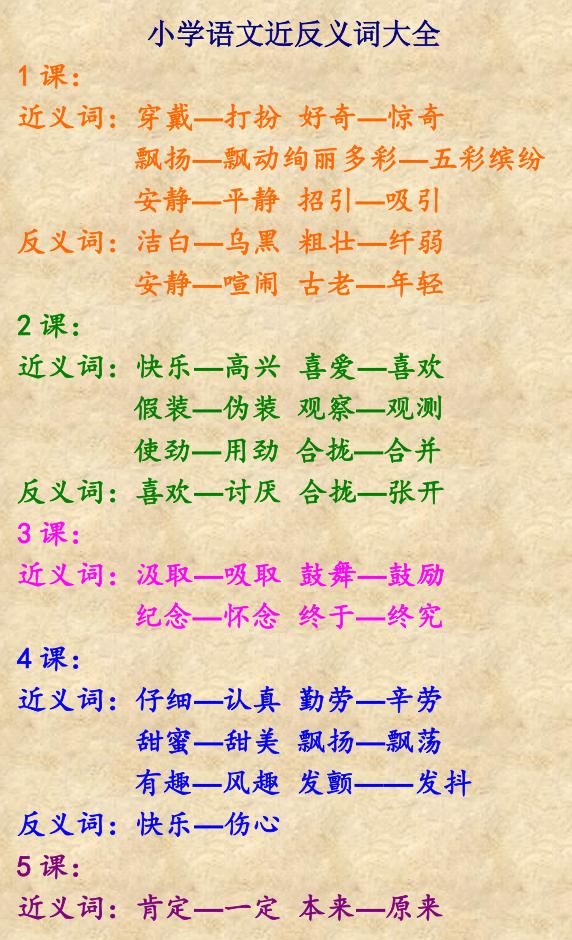 小学语文近反义词大全
1 课：
近义词：穿戴—打扮 好奇—惊奇
飘扬—飘动绚丽多彩—五彩缤纷
安静—平静 招引—吸引
反义词：洁白—乌黑 粗壮—纤弱
安静—喧闹 古老—年轻
2 课：
近义词：快乐—高兴 喜爱—喜欢
假装—伪装 观察—观测
使劲—用劲 合拢—合并
反义词：喜欢—讨厌 合拢—张开
3 课：
近义词：汲取—吸取 鼓舞—鼓励
纪念—怀念 终于—终究
4 课：
近义词：仔细—认真 勤劳—辛劳
甜蜜—甜美 飘扬—飘荡
有趣—风趣 发颤——发抖
反义词：快乐—伤心
5 课：
近义词：肯定—一定 本来—原来